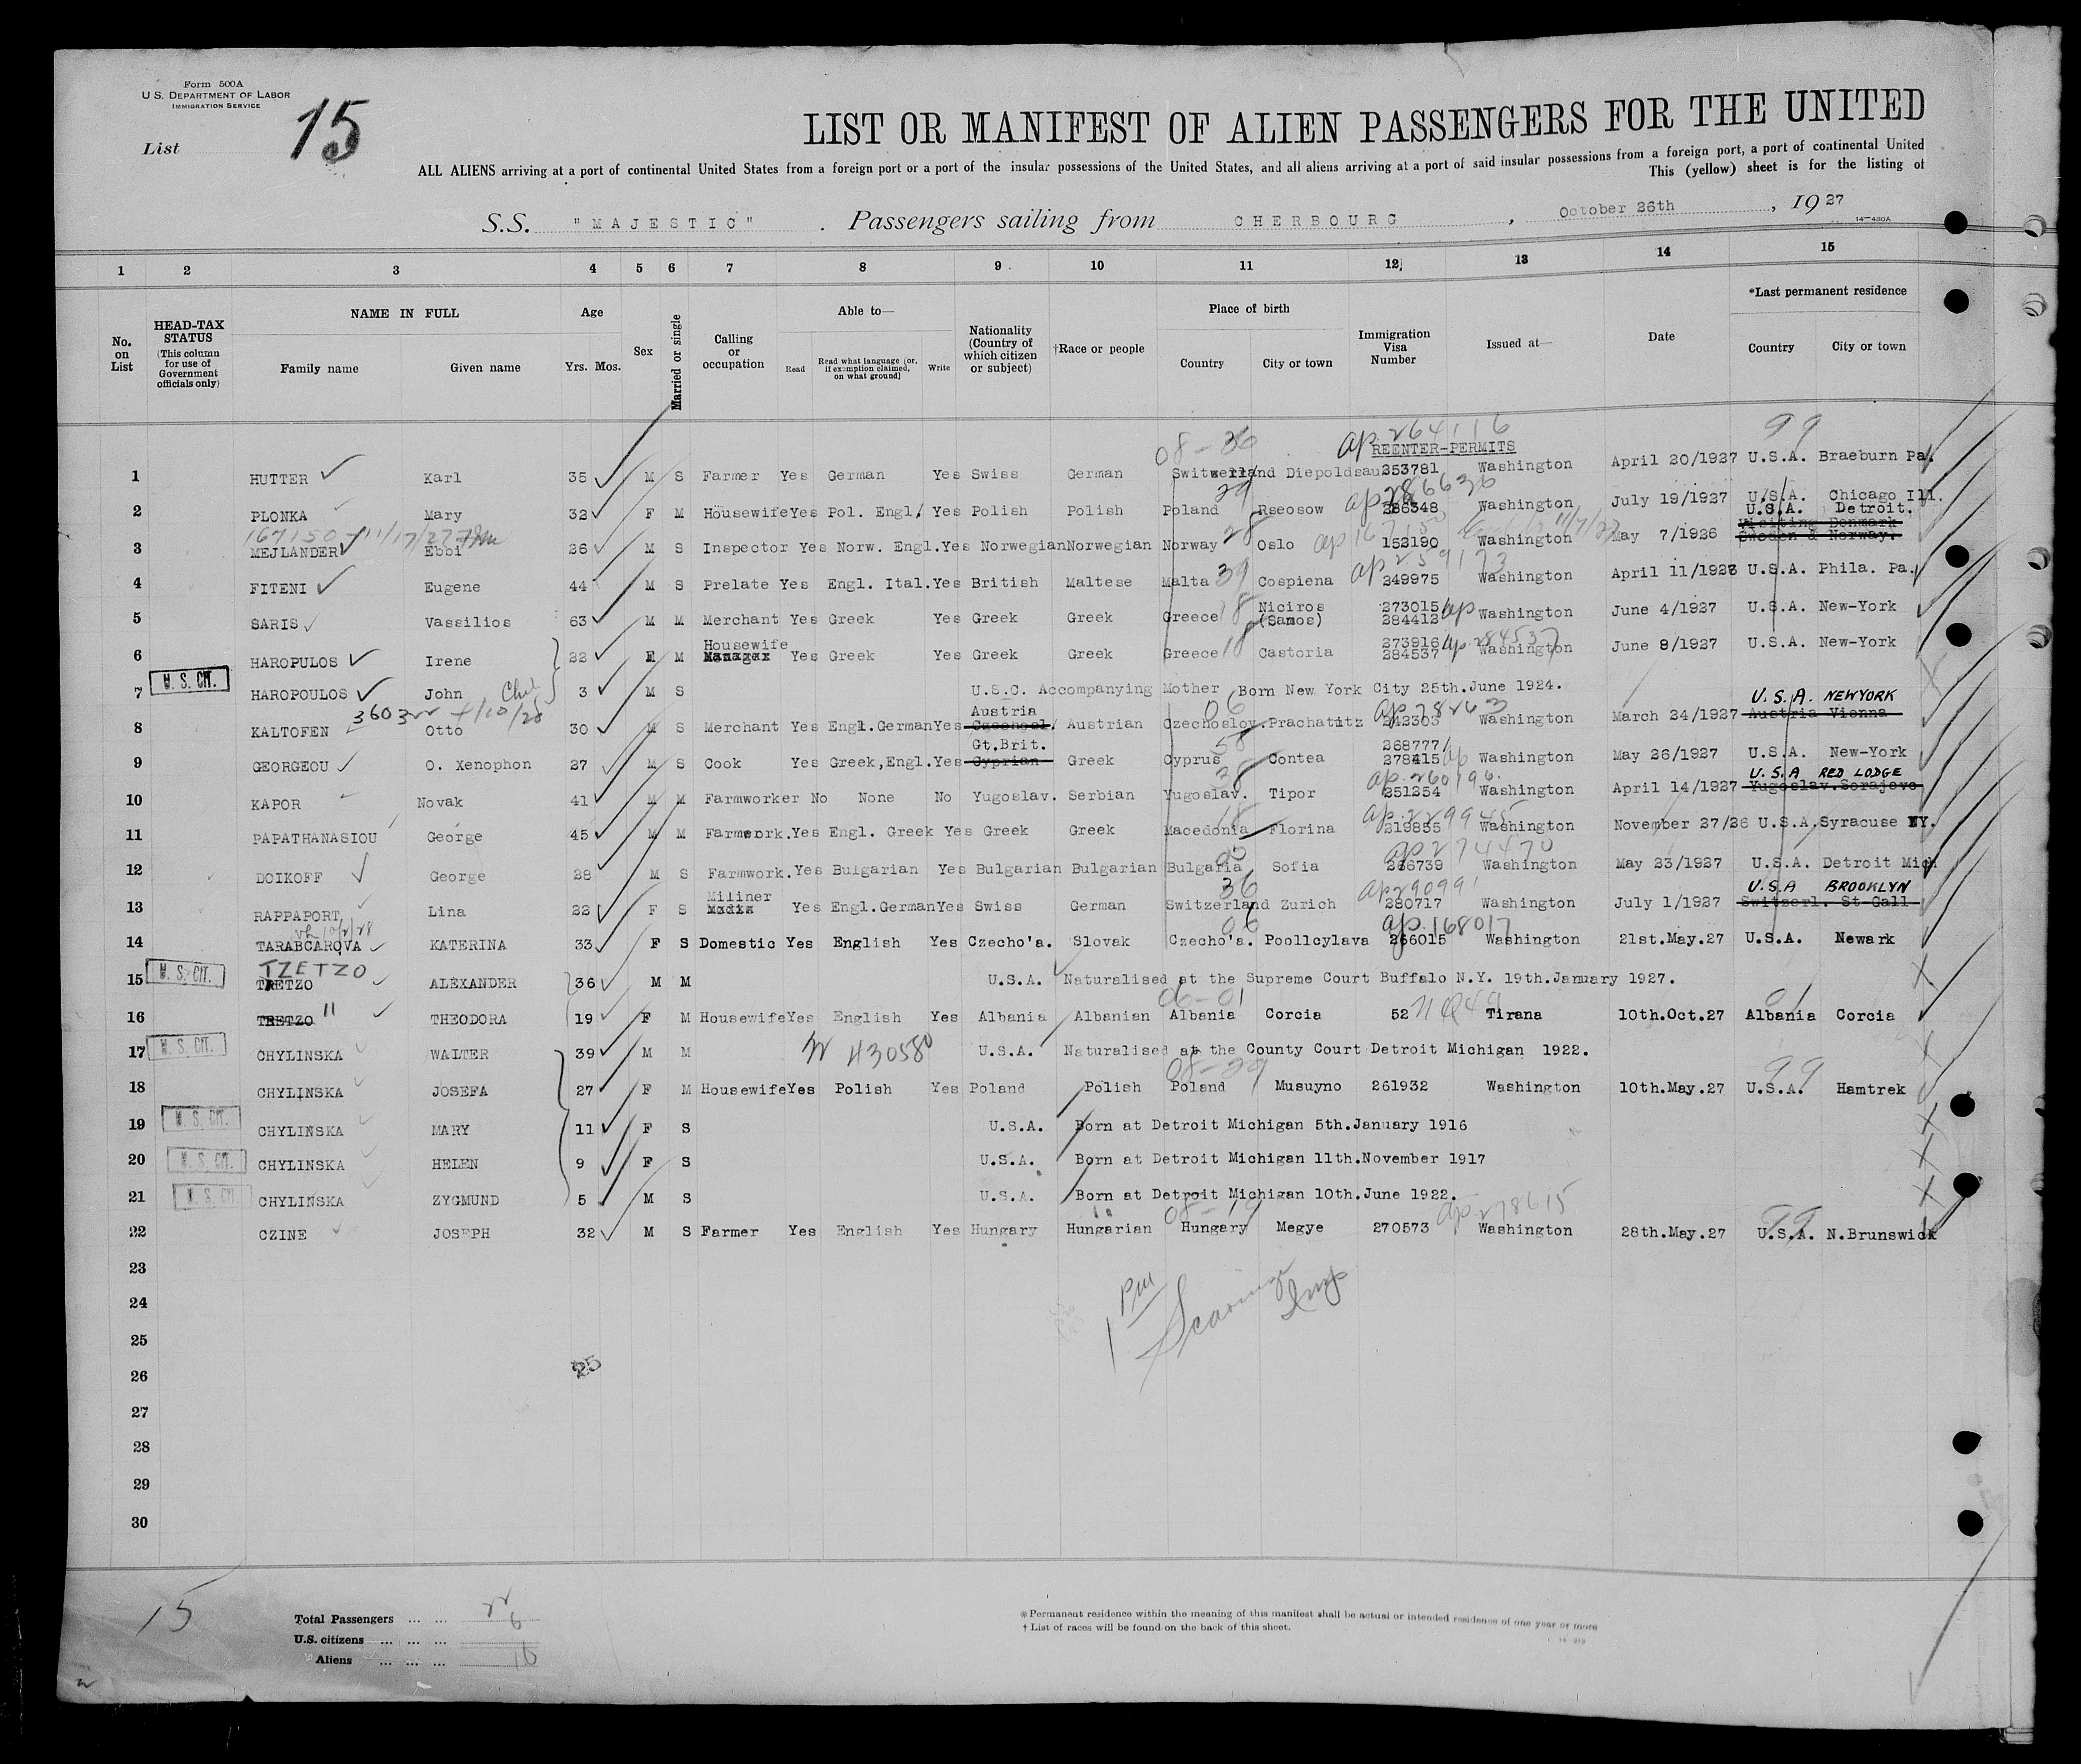 Form 500A
U. S. DEPARTMENT OF LABOR
IMMIGRATION SERVICE
List 15
LIST OR MANIFEST OF ALIEN PASSENGERS FOR THE UNITED
ALL ALIENS arriving at a port of continental United States from a foreign port or a port of the insular possessions of the United States, and all aliens arriving at a port of said insular possessions from a foreign port, a port of continental United
This (yellow) sheet is for the listing of
S.S. "MAJESTIC" . Passengers sailing from CHERBOURG , October 26th , 1927
14-430A
1 2 3 4 5 6 7 8 9 10 11 12 13 14 15
No. on List
HEAD-TAX STATUS (This column for use of Government officials only)
NAME IN FULL Family name Given name
Age Yrs. Mos.
Sex
Married or single
Calling or occupation
Able to— Read Read what language [or, if exemption claimed, on what ground] Write
Nationality (Country of which citizen or subject)
†Race or people
Place of birth Country City or town
Immigration Visa Number
Issued at—
Date
*Last permanent residence Country City or town
08-36 ap 264116 99
REENTER-PERMITS
1 HUTTER Karl 35 M S Farmer Yes German Yes Swiss German Switzerland Diepoldsau 253781 Washington April 20/1927 U.S.A. Braeburn Pa.
29 ap 286636
2 PLONKA Mary 32 F M Housewife Yes Pol. Engl. Yes Polish Polish Poland Rseosow 286348 Washington July 19/1927 U.S.A. Chicago Ill.
167150 - 11/17/27 U.S.A. Detroit.
3 MEJLANDER Ebbi 26 M S Inspector Yes Norw. Engl. Yes Norwegian Norwegian Norway 28 Oslo ap 167150 152190 Washington May 7/1926 Visiting Denmark Sweden & Norway.
ap 259173
4 FITENI Eugene 44 M S Prelate Yes Engl. Ital. Yes British Maltese Malta 39 Cospiena 249975 Washington April 11/1928 U.S.A. Phila. Pa.
5 SARIS Vassilios 63 M M Merchant Yes Greek Yes Greek Greek Greece 18 Niciros (Samos) 273015/ 284412 ap Washington June 4/1927 U.S.A. New-York
Housewife
6 HAROPULOS Irene 22 F M Manager Yes Greek Yes Greek Greek Greece 18 Castoria 273916/ 284537 ap 284537 Washington June 8/1927 U.S.A. New-York
7 U. S. CIT. HAROPOULOS John 3 M S U.S.C. Accompanying Mother Born New York City 25th.June 1924.
Austria 06 U.S.A. NEWYORK
8 KALTOFEN Otto 30 M S Merchant Yes Engl.German Yes Czechosl. Austrian Czechoslov. Prachatitz 242303 Washington March 24/1927 Austria Vienna
Gt.Brit. 268777/
9 GEORGEOU O. Xenophon 27 M S Cook Yes Greek,Engl. Yes Cyprian Greek Cyprus Contea 278415 ap Washington May 26/1927 U.S.A. New-York
ap. 260196. U.S.A RED LODGE
10 KAPOR Novak 41 M M Farmworker No None No Yugoslav. Serbian Yugoslav. Tipor 251254 Washington April 14/1927 Yugoslav.Serajevo
18 ap. 229945
11 PAPATHANASIOU George 45 M M Farmwork. Yes Engl. Greek Yes Greek Greek Macedonia Florina 219855 Washington November 27/26 U.S.A. Syracuse NY.
ap 274470
12 DOIKOFF George 28 M S Farmwork. Yes Bulgarian Yes Bulgarian Bulgarian Bulgaria Sofia 266739 Washington May 23/1927 U.S.A. Detroit Mich
Miliner 36 ap 290991 U.S.A BROOKLYN
13 RAPPAPORT Lina 22 F S Modix Yes Engl.German Yes Swiss German Switzerland Zurich 280717 Washington July 1/1927 Switzerl. St-Gall
06 ap. 168017
14 TARABCAROVA KATERINA 33 F S Domestic Yes English Yes Czecho'a. Slovak Czecho'a. Poollcylava 266015 Washington 21st.May.27 U.S.A. Newark
TZETZO
15 U. S. CIT. TRETZO ALEXANDER 36 M M U.S.A. Naturalised at the Supreme Court Buffalo N.Y. 19th.January 1927.
06-01 01
16 TRETZO " THEODORA 19 F M Housewife Yes English Yes Albania Albanian Albania Corcia 52 Tirana 10th.Oct.27 Albania Corcia
17 U. S. CIT. CHYLINSKA WALTER 39 M M 430580 U.S.A. Naturalised at the County Court Detroit Michigan 1922.
08-29 99
18 CHYLINSKA JOSEFA 27 F M Housewife Yes Polish Yes Poland Polish Poland Musuyno 261932 Washington 10th.May.27 U.S.A. Hamtrek
19 U. S. CIT. CHYLINSKA MARY 11 F S U.S.A. Born at Detroit Michigan 5th.January 1916
20 U. S. CIT. CHYLINSKA HELEN 9 F S U.S.A. Born at Detroit Michigan 11th.November 1917
21 U. S. CIT. CHYLINSKA ZYGMUND 5 M S U.S.A. Born at Detroit Michigan 10th.June 1922.
08-19 ap. 278615 99
22 CZINE JOSEPH 32 M S Farmer Yes English Yes Hungary Hungarian Hungary Megye 270573 Washington 28th.May.27 U.S.A. N.Brunswick
23
24
25
26
27
28
29
30
15
Total Passengers ... ... 22
U.S. citizens ... ... ... 6
Aliens ... ... ... 16
* Permanent residence within the meaning of this manifest shall be actual or intended residence of one year or more
† List of races will be found on the back of this sheet.